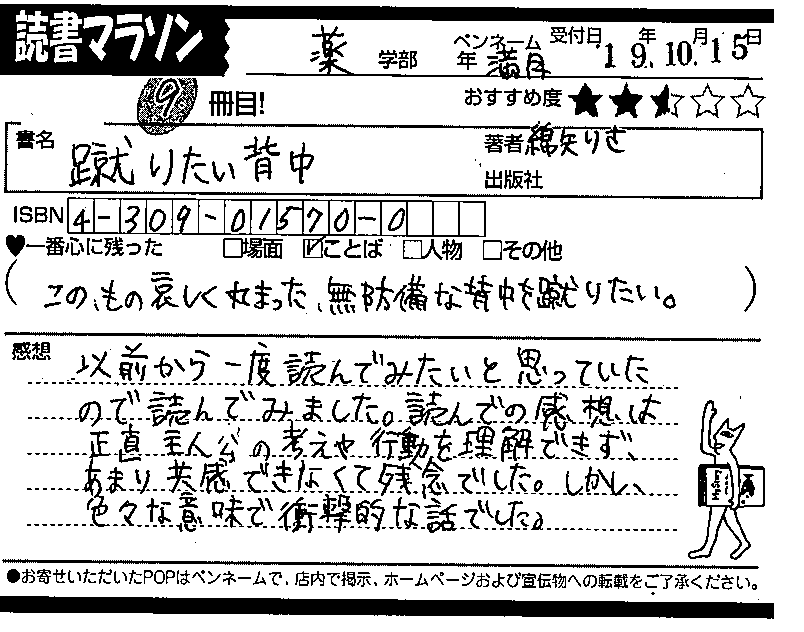 読書マラソン
薬 学部 年 ペンネーム 満月 受付日 19年10月15日
9 冊目! おすすめ度 ★★
書名 蹴りたい背中 著者 綿矢りさ
出版社
ISBN 4-309-01570-0
♥一番心に残った □場面 ☑ことば □人物 □その他
(この、もの哀しく丸まった、無防備な背中を蹴りたい。)
感想 以前から一度読んでみたいと思っていた
ので読んでみました。読んでの感想は
正直主人公の考えや行動を理解できず、
あまり共感できなくて残念でした。しかし、
色々な意味で衝撃的な話でした。
●お寄せいただいたPOPはペンネームで、店内で掲示、ホームページおよび宣伝物への転載をご了承ください。